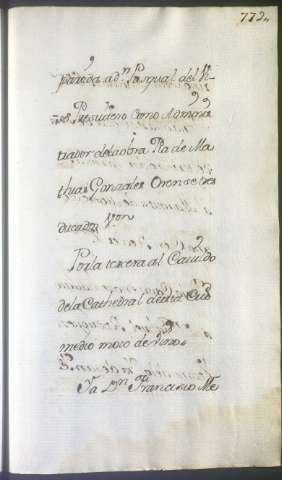 772
pareda a dn. Pasqual del Ri-
Presvitero Como Adminis
trador de la obra Pia de Ma
thias Gonzalez Orense tres
ducados Von
Por la tercera al Cavildo
de la Cathedral de dha Ciud
medio moio de vino
Ya Dn. Francisco Me